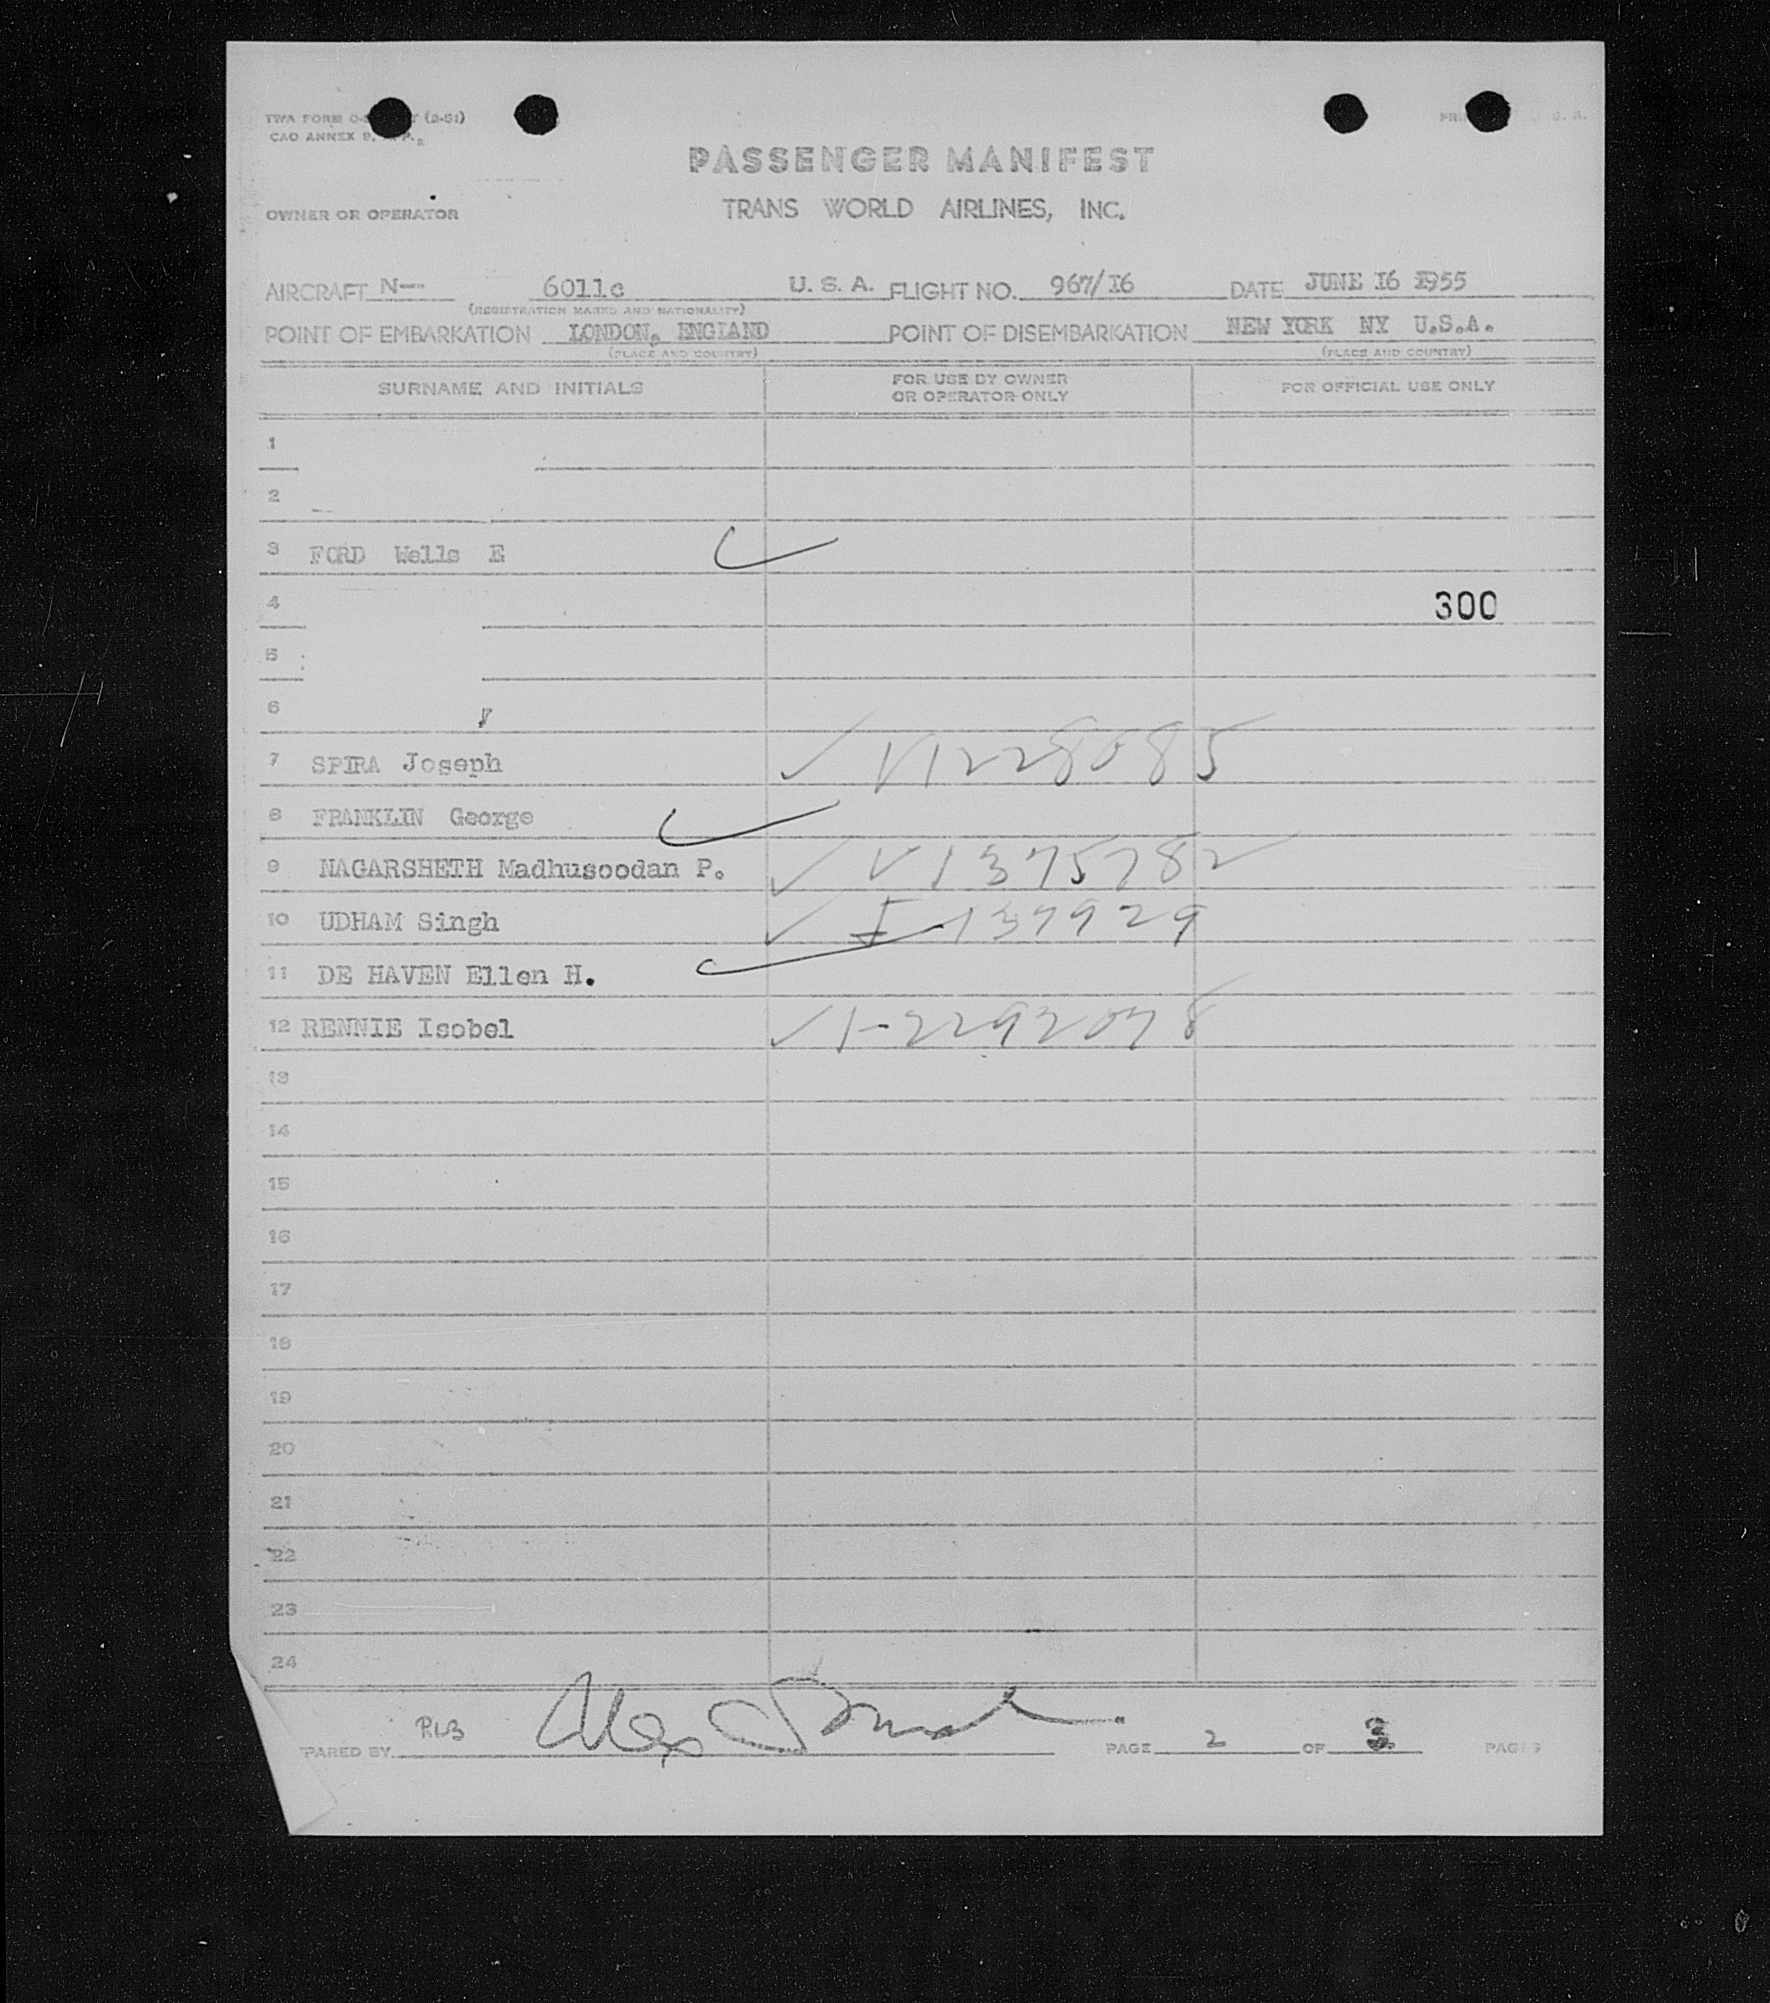 TWA FORM (2-51)
CAO ANNEX 9,
PASSENGER MANIFEST
OWNER OR OPERATOR TRANS WORLD AIRLINES, INC.
AIRCRAFT N-- 6011c U. S. A. FLIGHT NO. 967/16 DATE JUNE 16 1955
(REGISTRATION MARKS AND NATIONALITY)
POINT OF EMBARKATION LONDON, ENGLAND POINT OF DISEMBARKATION NEW YORK NY U.S.A.
(PLACE AND COUNTRY) (PLACE AND COUNTRY)
SURNAME AND INITIALS FOR USE BY OWNER OR OPERATOR ONLY FOR OFFICIAL USE ONLY
1
2
3 FORD Wells E
4 300
5
6
7 SPIRA Joseph ✓ V1228085
8 FRANKLIN George ✓
9 NAGARSHETH Madhusoodan P. ✓ V1375782
10 UDHAM Singh ✓ I-137929
11 DE HAVEN Ellen H. ✓
12 RENNIE Isobel ✓ 1-2292078
13
14
15
16
17
18
19
20
21
22
23
24
PARED BY PAGE 2 OF 3 PAGES